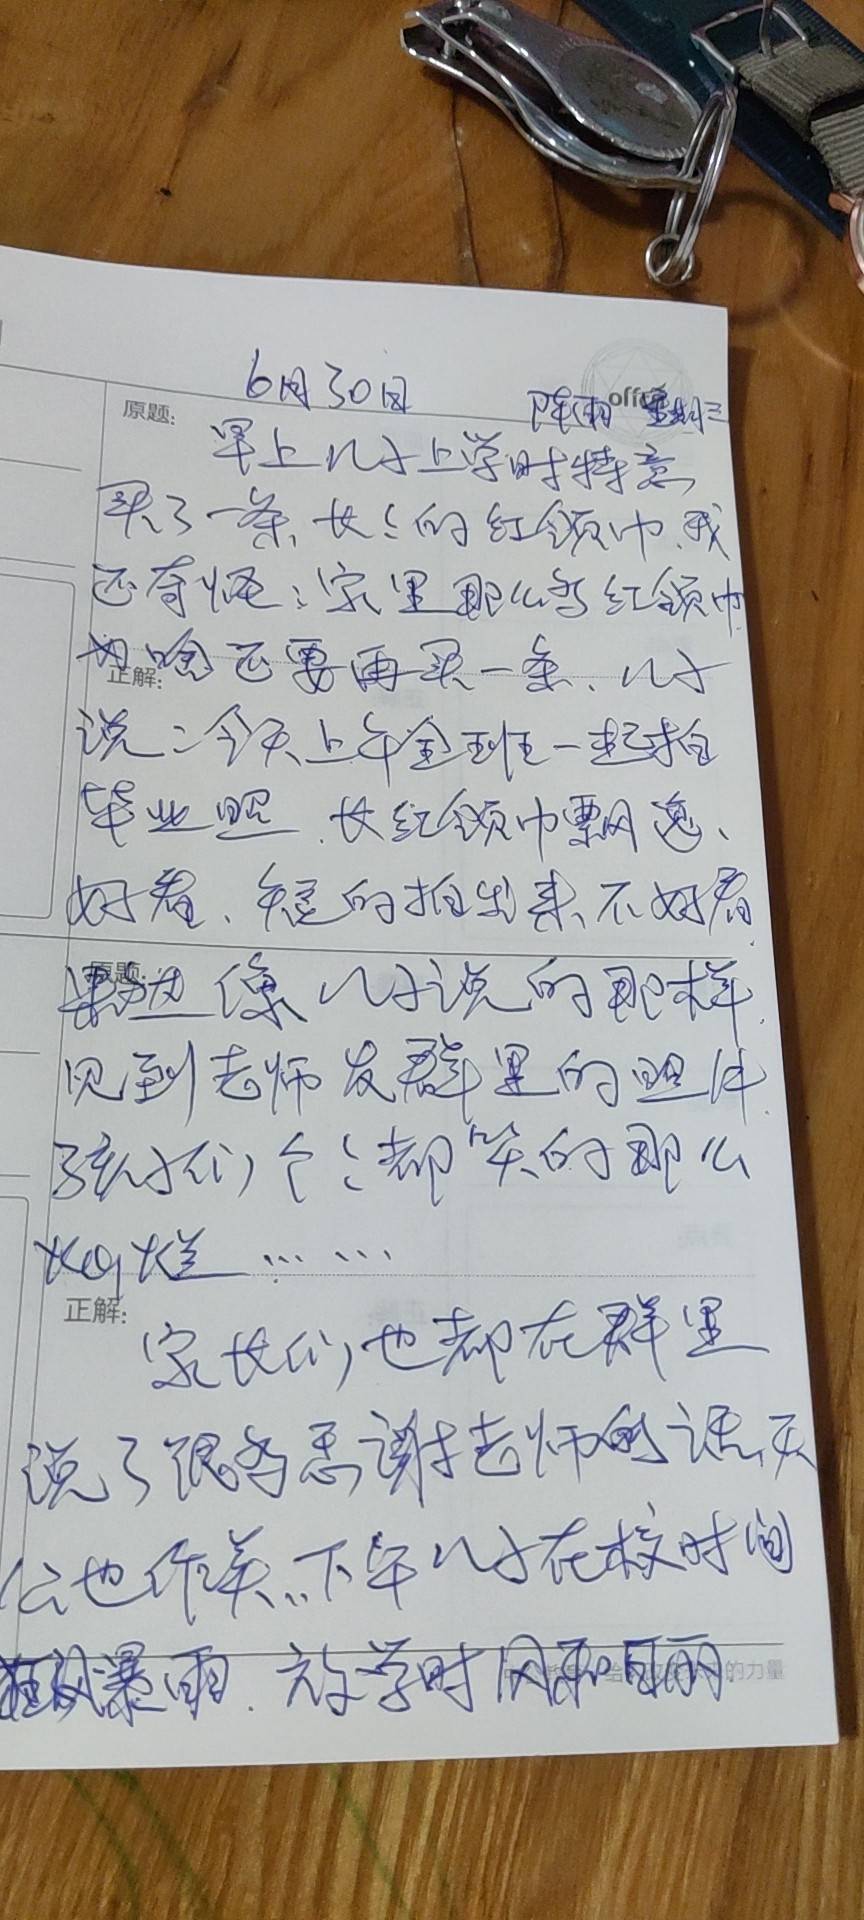 6月30日
阵雨 星期三
原题:
早上儿子上学时特意
买了一条长长的红领巾、我
还奇怪：家里那么多红领巾
为啥还要再买一条、儿子
正解:
说：今天上午全班一起拍
毕业照、长红领巾飘逸、
好看、短的拍出来不好看
原题:
果然像儿子说的那样、
见到老师发群里的照片、
孩子们个个都笑的那么
灿烂……
正解:
家长们也都在群里
说了很多感谢老师的话、天
公也作美、下午儿子在校时间
狂风暴雨、放学时风和日丽
的力量